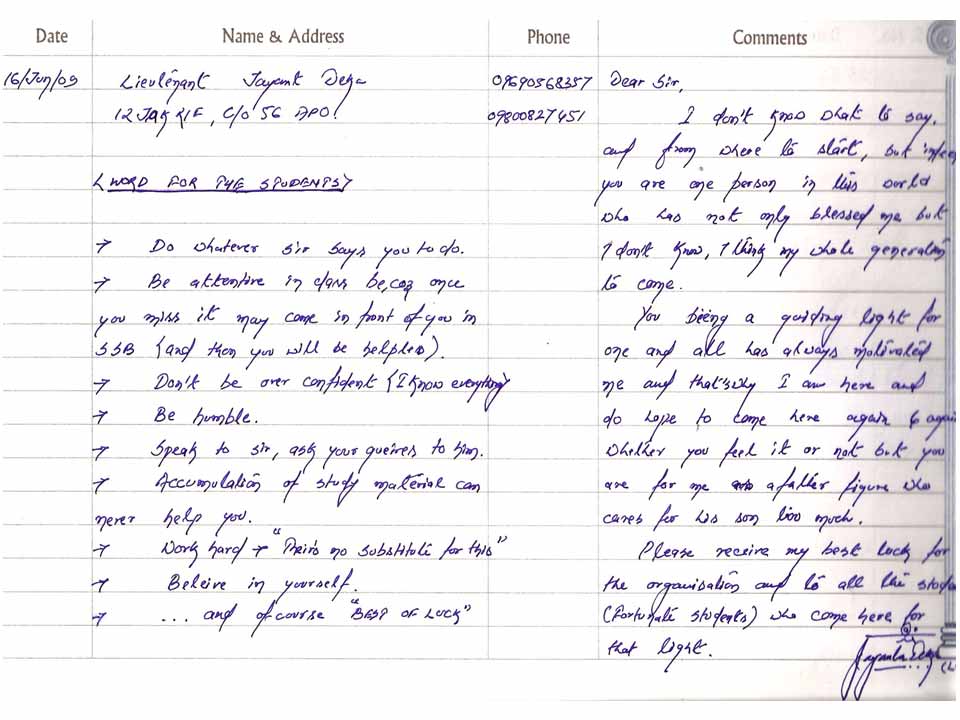 Date Name & Address Phone Comments
16/Jun/09 Lieutenant Jayant 09690568357 Dear Sir,
12 JAK RIF, C/o 56 APO. 09800827451 I don't know what to say,
and from where to start, but
<WORD FOR THE STUDENTS> you are one person in this world
who has not only blessed me but
→ Do whatever sir says you to do. I don't know, I think my whole generation
→ Be attentive in class be,coz once to come.
you miss it may come in front of you in You being a guiding light for
SSB (and then you will be helpless). one and all has always motivated
→ Don't be over confident (I know everything) me and that's why I am here and
→ Be humble. do hope to come here again & again
→ Speak to sir, ask your queires to him. whether you feel it or not but you
→ Accumulation of study material can are for me a father figure who
never help you. cares for his son too much.
→ Work hard → "Their's no substitute for this" Please receive my best luck for
→ Beleive in yourself. the organisation and to all the
→ ... and of course "BEST OF LUCK" (Fortunate students) who come here for
that light.